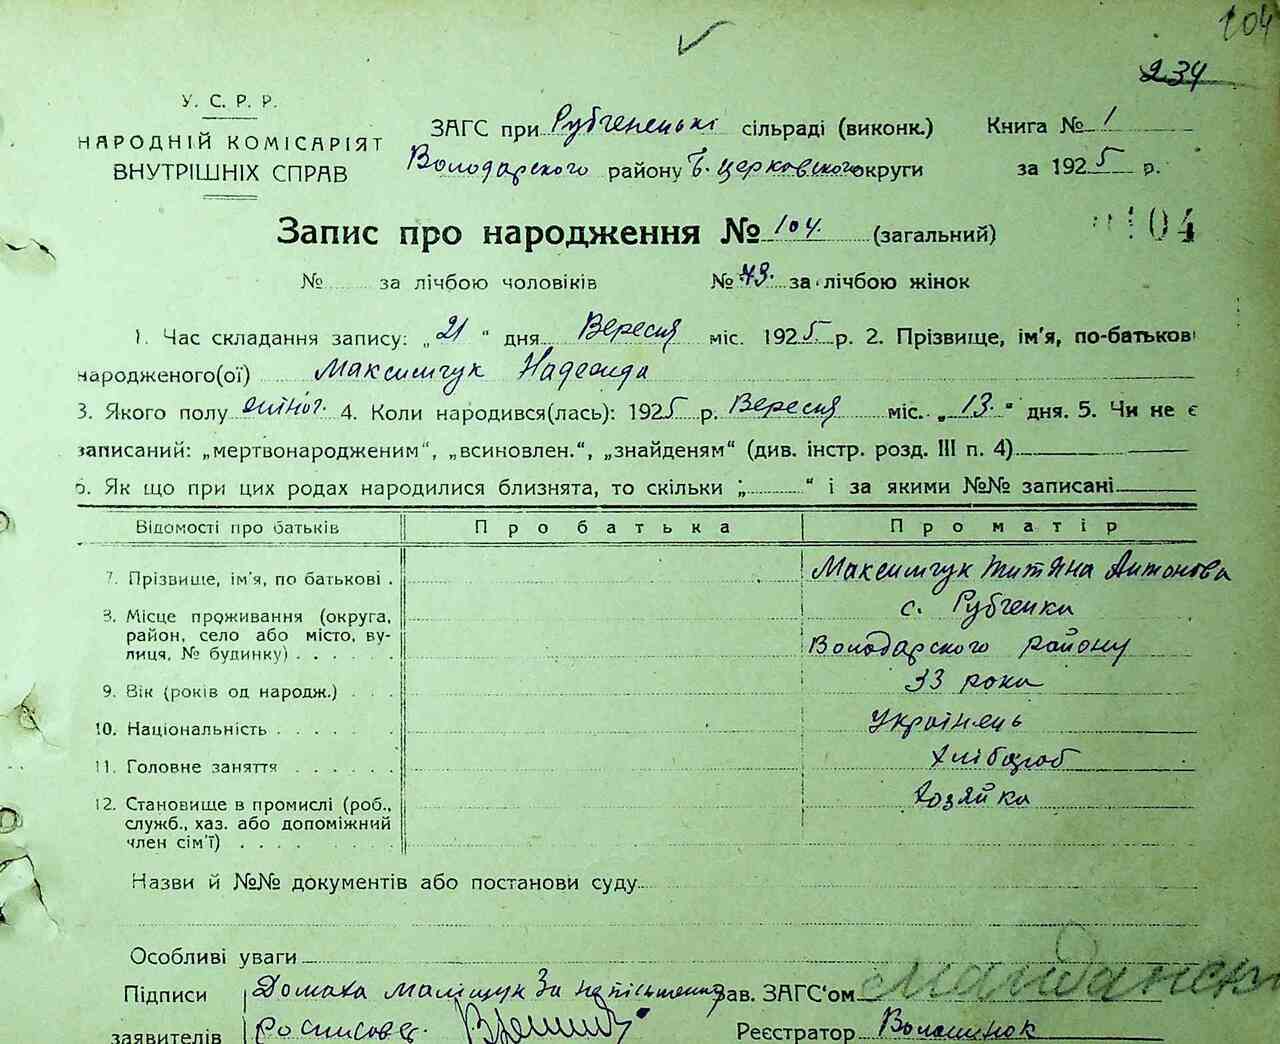 104
234
У. С. Р. Р.
НАРОДНІЙ КОМІСАРІЯТ
ВНУТРІШНІХ СПРАВ
ЗАГС при Рубченецькі сільраді (виконк.) Книга № 1
Володарского району Б. церковського округи за 1925 р.
Запис про народження № 104. (загальний) 104
№ за лічбою чоловіків № 43. за лічбою жінок
1. Час складання запису: „21“ дня Вересня міс. 1925 р. 2. Прізвище, ім'я, по-батькові
народженого(ої) Максимчук Надежда
3. Якого полу жіноч. 4. Коли народився(лась): 1925 р. Вересня міс. „13.“ дня. 5. Чи не є
записаний: „мертвонародженим“, „всиновлен.“, „знайденям“ (див. інстр. розд. III п. 4)
6. Як що при цих родах народилися близнята, то скільки „ “ і за якими №№ записані
Відомості про батьків Про батька Про матір
7. Прізвище, ім'я, по батькові . Максимчук Титяна Антонова
8. Місце проживання (округа, с. Рубченки
район, село або місто, ву- Володарского району
лиця, № будинку) . . . .
9. Вік (років од народж.) . . . 33 роки
10. Національність . . . . . Українець
11. Головне заняття . . . . . Хлібороб
12. Становище в промислі (роб., Хозяйка
служб., хаз. або допоміжний
член сім'ї) . . . .
Назви й №№ документів або постанови суду
Особливі уваги
Підписи Домаха За неписьменну Зав. ЗАГС'ом
заявителів росписовсь. Реєстратор